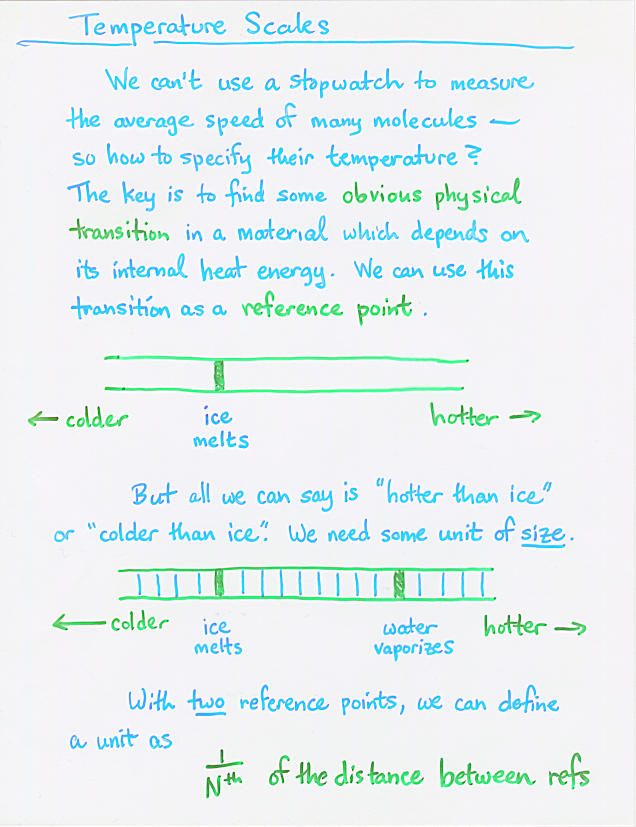 Temperature Scales
We can't use a stopwatch to measure
the average speed of many molecules —
so how to specify their temperature?
The key is to find some obvious physical
transition in a material which depends on
its internal heat energy. We can use this
transition as a reference point.
← colder ice hotter →
melts
But all we can say is "hotter than ice"
or "colder than ice". We need some unit of size.
← colder ice water hotter →
melts vaporizes
With two reference points, we can define
a unit as
1/Nth of the distance between refs